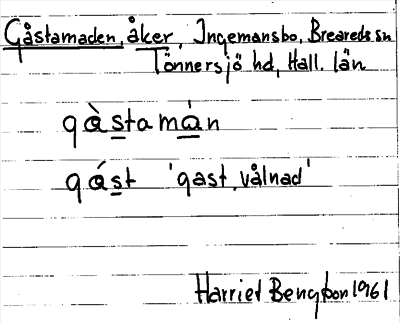 Gåstamaden, åker, Ingemansbo, Breareds sn
Tönnersjö hd, Hall. län
gàstamán
gást 'gast, vålnad'
Harriet Bengtson 1961